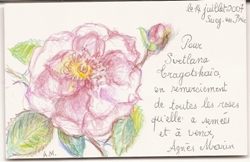 le 14 juillet 2007
Sucy-en-Brie
Pour
Svetlana
en remerciement
de toutes les roses
qu'elle a semées
et à venir,
Agnès Marin
A.M.